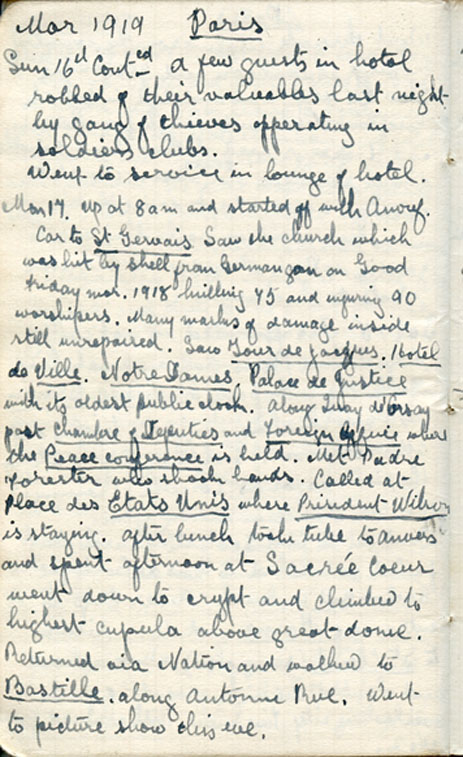 Mar 1919 Paris
Sun 16th Conted A few guests in hotel
robbed of their valuables last night
by gang of thieves opperating in
soldiers clubs.
Went to service in lounge of hotel.
Mon 17. Up at 8 am and started off with
Car to St Gervais Saw the church which
was hit by shell from German gun on Good
Friday Mar. 1918 killing 45 and injuring 90
worshipers. Many marks of damage inside
still unrepaired. Saw Tour de Jacques. Hotel
de Ville. Notre Dames. Palace de Justice
with its oldest public clock. Along Quay d'Orsay
past Chambre of Deputies and Foreign Office where
the Peace Conference is held. Met Padre
Forester who shook hands. Called at
Place des Etats Unis where President Wilson
is staying. After lunch took tube to Anvers
and spent afternoon at Sacrée Coeur
went down to crypt and climbed to
highest cupula above great dome.
Returned via Nation and walked to
Bastille. along Antoine Rue. Went
to picture show this eve.